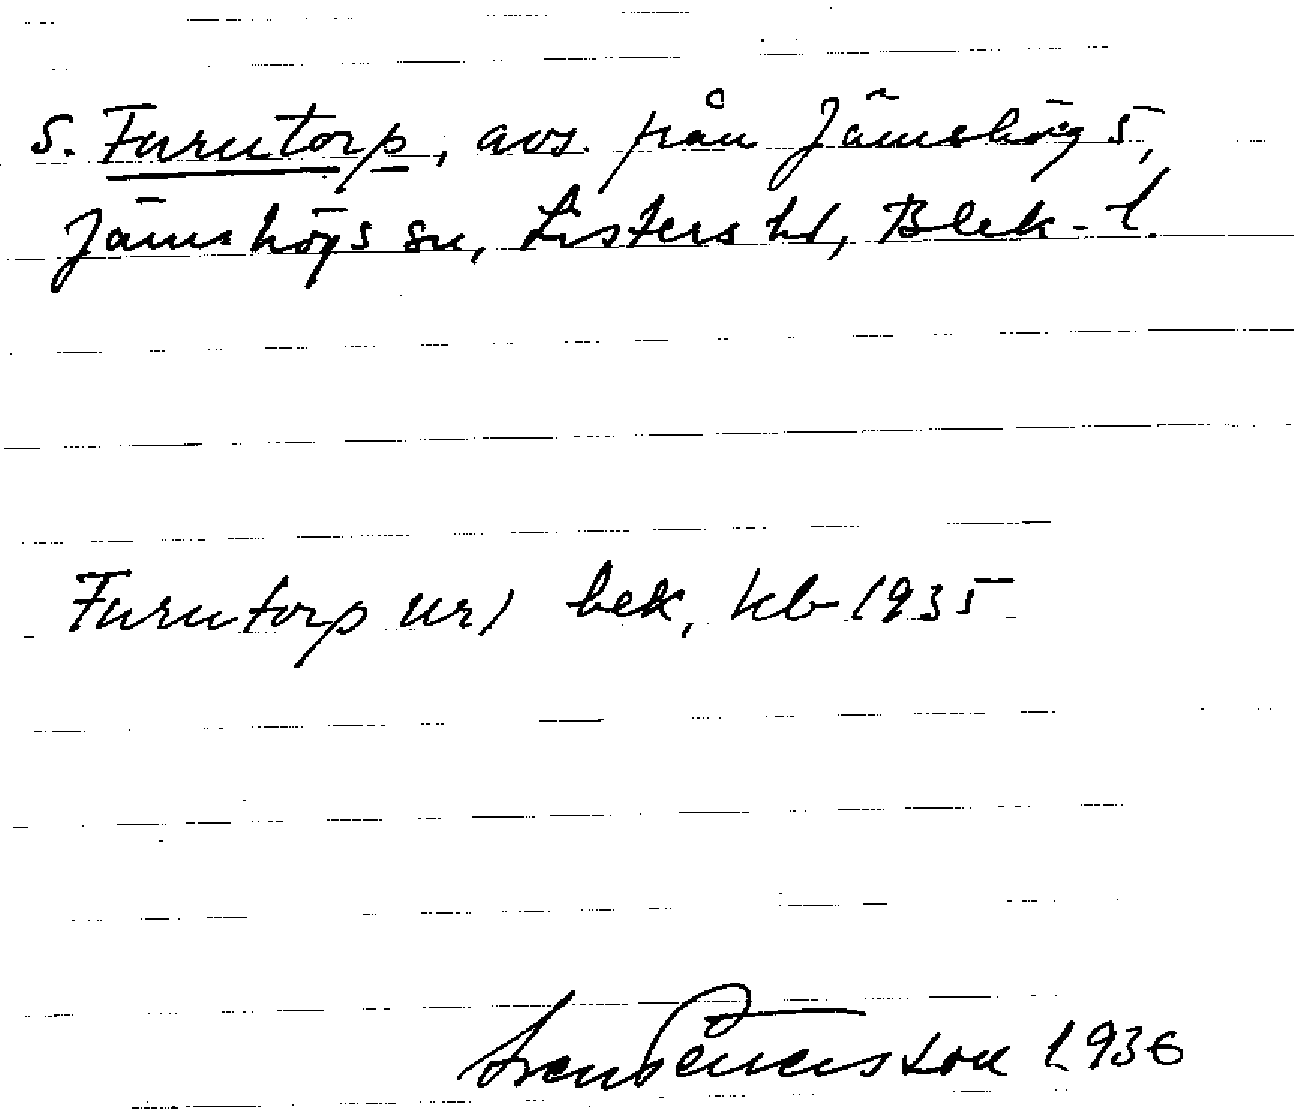 S. Furutorp, avs. från Jämshög 5,
Jämshögs sn, Listers hd, Blek. l.
Furutorp ur) bek, kb 1935
Sven Benson 1936